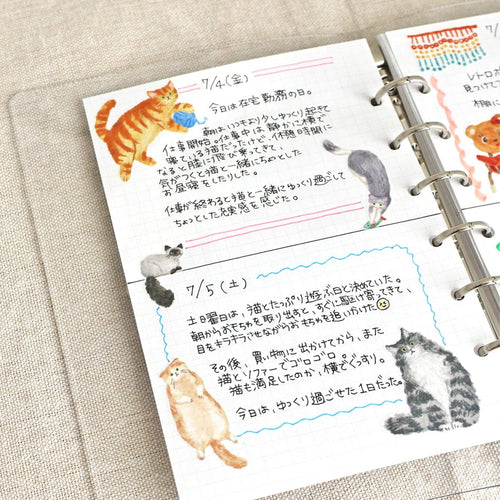 7/4(金)
今日は在宅勤務の日。
朝はいつもより少しゆっくり起きて
仕事開始。仕事中は静かに横で
寝ている猫だったけど、休憩時間に
なると膝に飛び乗ってきて、
気がつくと猫と一緒にちょっとした
お昼寝をしたりした。
仕事が終わると猫と一緒にゆっくり過ごして
ちょっとした充実感を感じた。
7/5(土)
土曜日は、猫とたっぷり遊ぶ日と決めていた。
朝からおもちゃを取り出すと、すぐに駆け寄ってきて、
目をキラキラさせながらおもちゃを追いかけた
その後、買い物に出かけてから、また
猫とソファーでゴロゴロ。
猫も満足したのか、横でぐっすり。
今日は、ゆっくり過ごせた1日だった。
7/
レトロ
見つけて